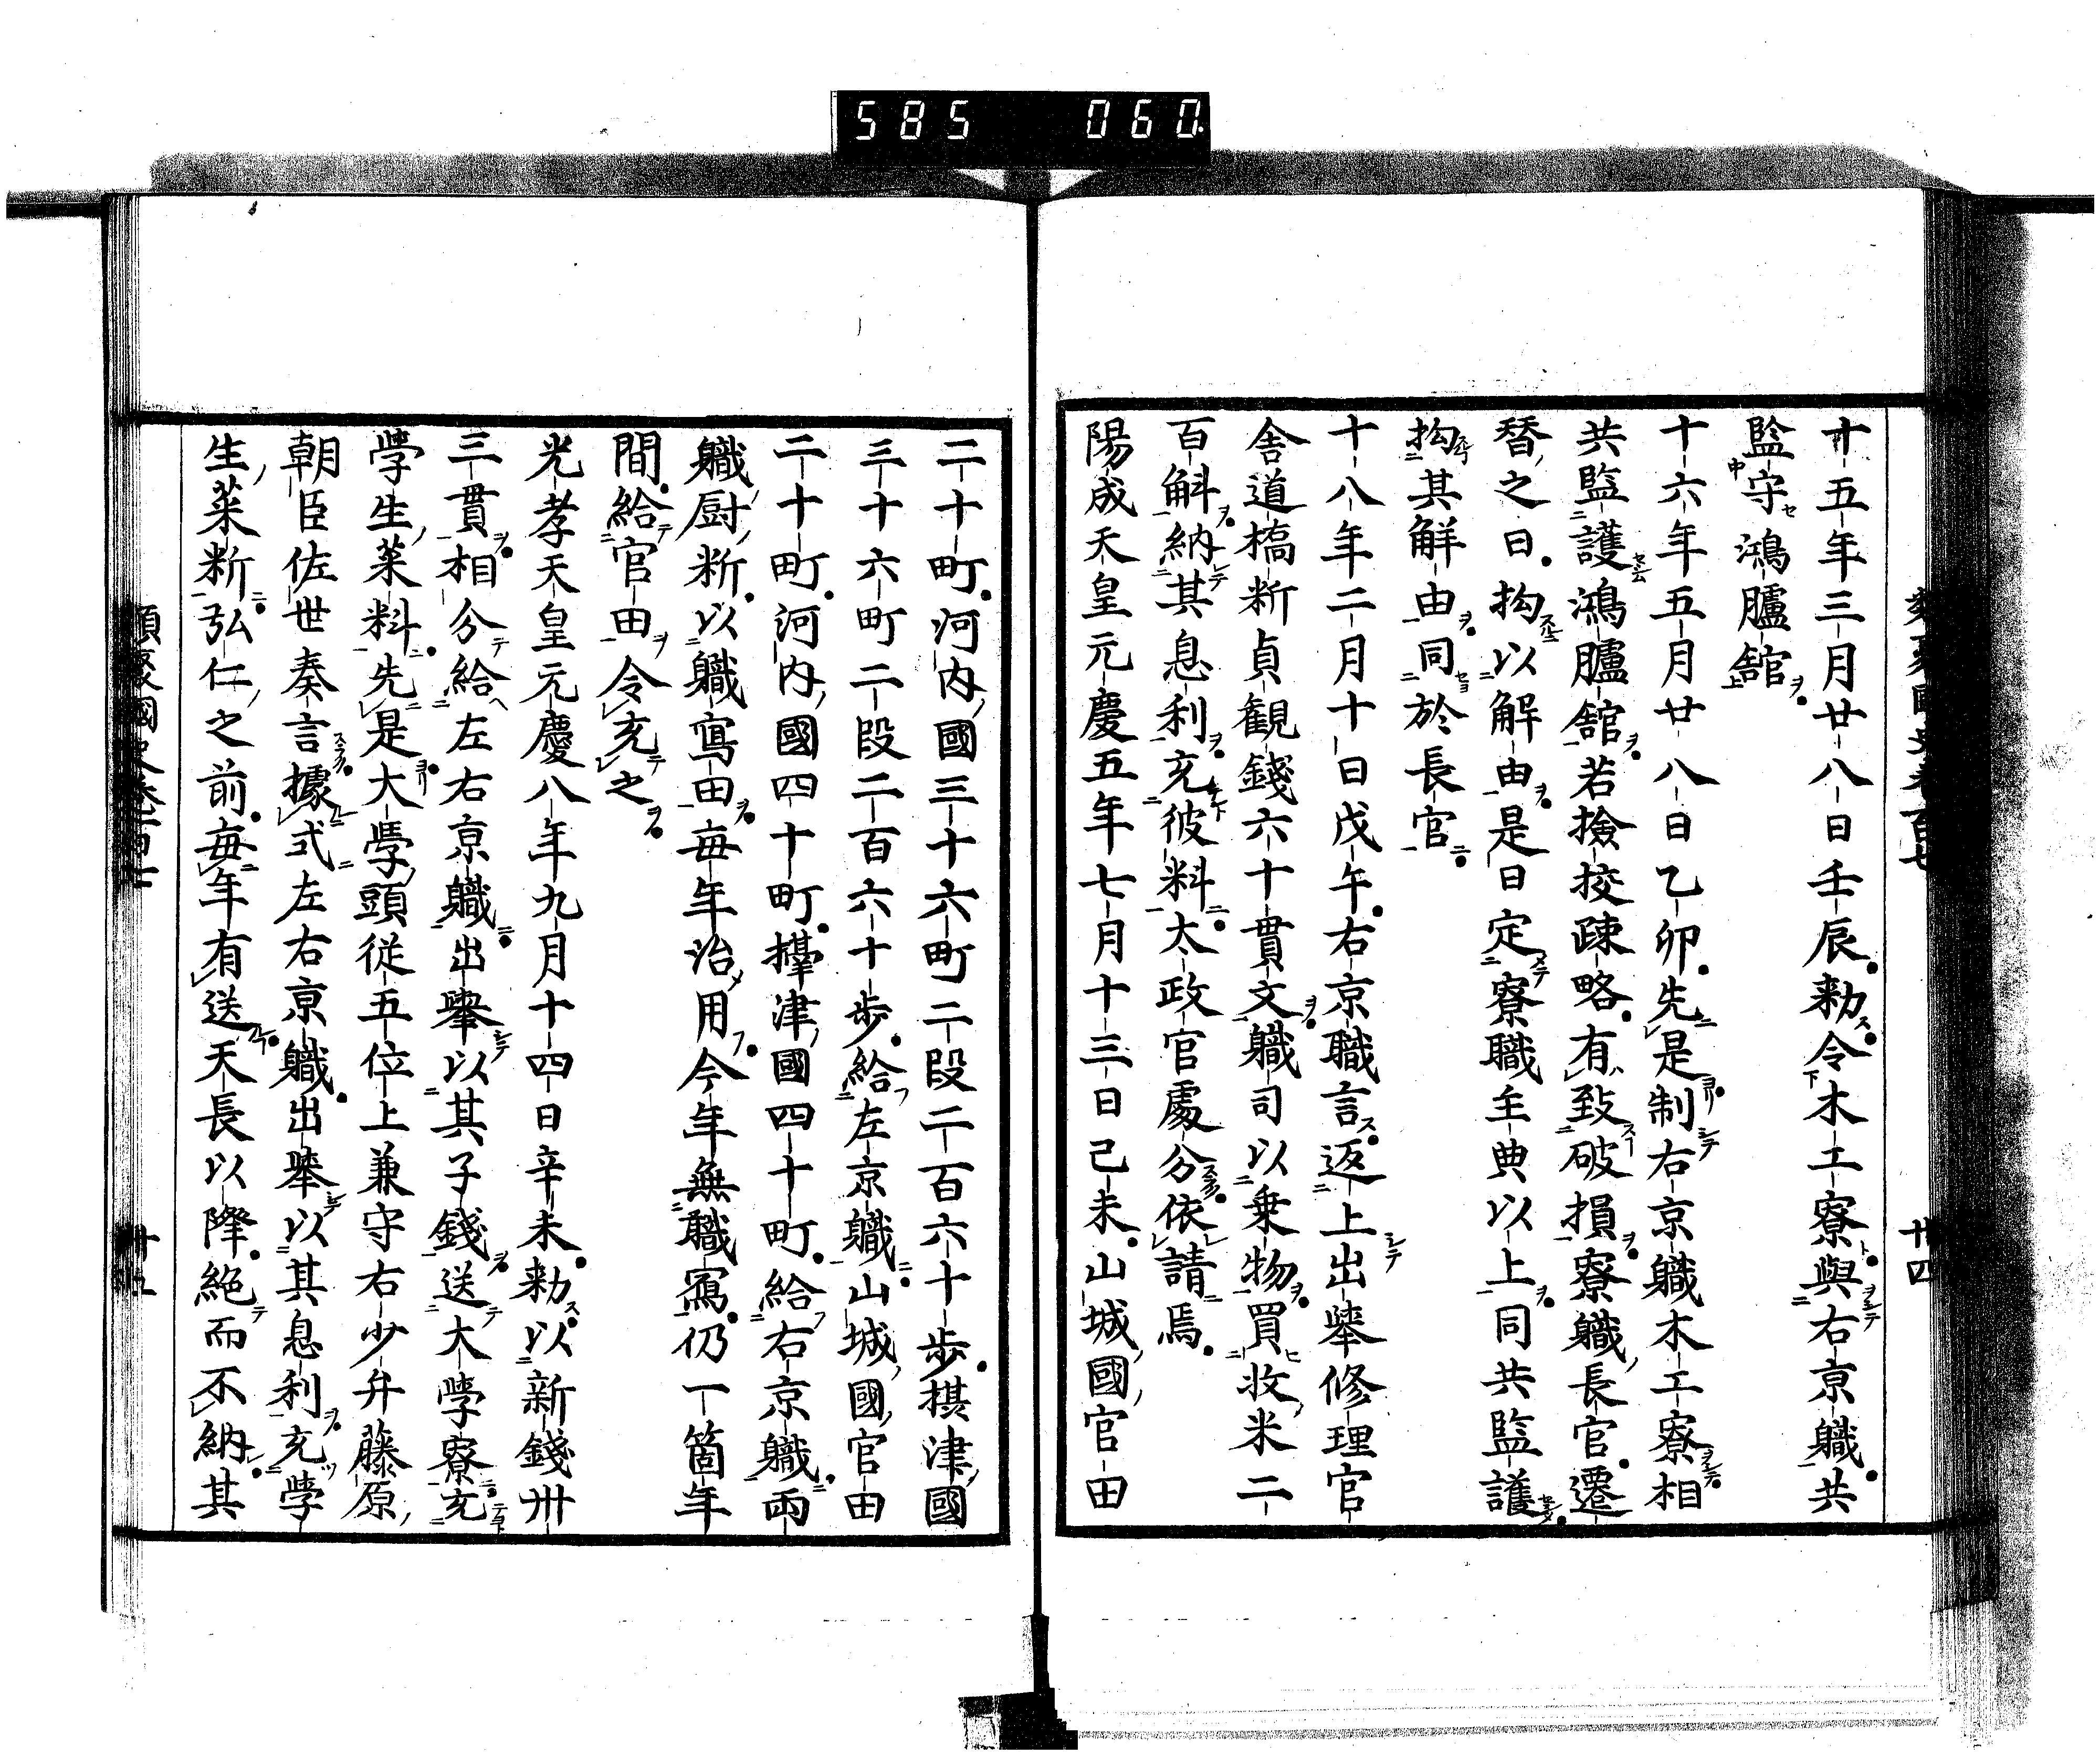 585 060
十五年三月廿八日壬辰勑令木工寮與右京職共
監守鴻臚舘
十六年五月廿八日乙卯先是制右京職木工寮相
共監護鴻臚舘若撿挍疎略有致破損寮職長官遷
替之日抅以解由是日定寮職主典以上同共監護
抅其解由同於長官
十八年二月十日戊午右京職言返上出舉修理官
舎道橋斷貞観錢六十貫文職司以乗物買收米二
百斛納其息利充彼料太政官處分依請焉
陽成天皇元慶五年七月十三日己未山城國官田
二十町河内國三十六町二段二百六十歩攝津國
三十六町二段二百六十歩給左京職山城國官田
二十町河内國四十町攝津國四十町給右京職兩
職厨斷以職寫田毎年治用今年無職寫仍一箇年
間給官田令充之
光孝天皇元慶八年九月十四日辛未勑以新錢卅
三貫相分給左右京職出舉以其子錢送大學寮充
學生菜料先是大學頭從五位上兼守右少弁藤原
朝臣佐世奏言據式左右京職出舉以其息利充學
生菜斷弘仁之前毎年有送天長以降絶而不納其